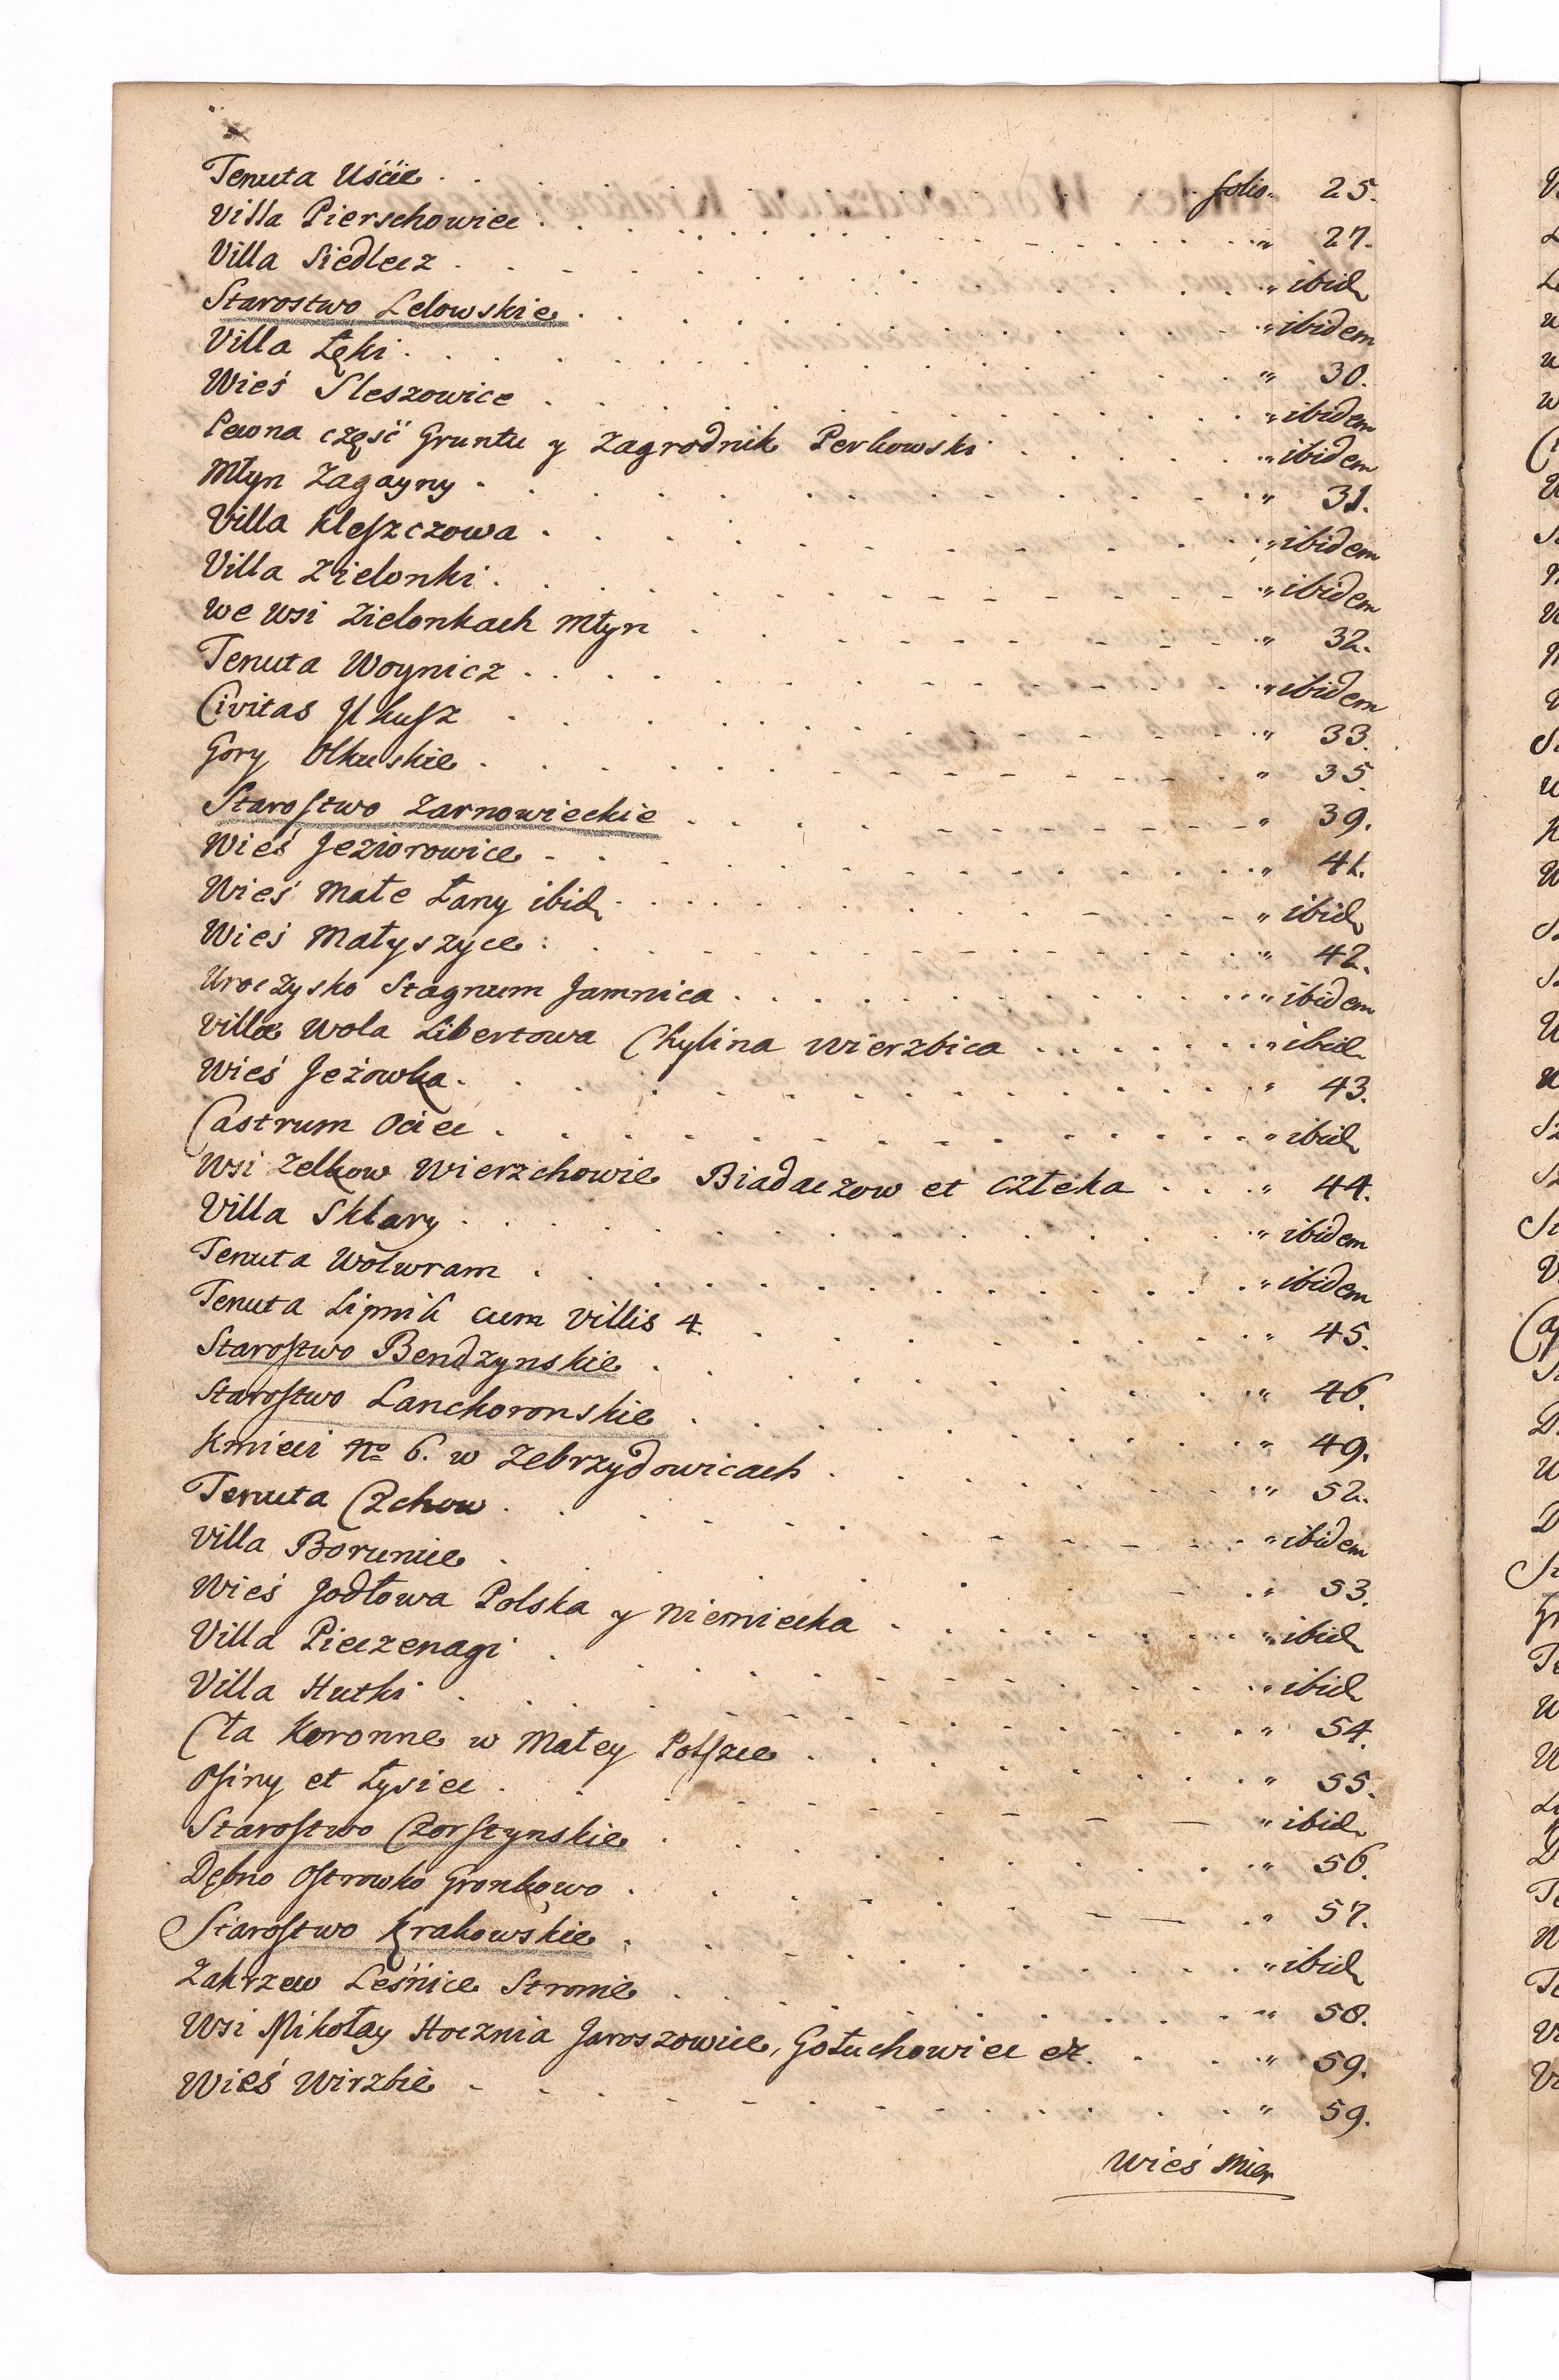 Tenuta Uście . . . folio. 25.
Villa Pierschowice . . . " 27.
Villa Siedlecz . . . " ibid
Starostwo Lelowskie . . . " ibidem
Villa Łęki . . . " 30.
Wieś Sleszowice . . . " ibidem
Pewna część Gruntu y Zagrodnik Perkowski . . . " ibidem
Młyn Zagayny . . . " 31.
Villa Kleszczowa . . . " ibidem
Villa Zielonki . . . " ibidem
we wsi Zielonkach Młyn . . . " 32.
Tenuta Woynicz . . . " ibidem
Civitas Ilkusz . . . " 33.
Gory Olkuskie . . . " 35.
Starostwo Zarnowieckie . . . " 39.
Wieś Jeziorowice . . . " 41.
Wieś Małe Łany ibid . . . " ibid
Wieś Małyszyce . . . " 42.
Uroczysko Stagnum Jamnica . . . " ibidem
Villa Wola Libertowa Chylina Wierzbica . . . " ibid
Wieś Jeżowka . . . " 43.
Castrum Ociec . . . " ibid
Wsi Zelkow Wierzchowie Biadaczow et Człeka . . . " 44.
Villa Sklary . . . " ibidem
Tenuta Wolwram . . . " ibidem
Tenuta Lipnik cum Villis 4. . . . " 45.
Starostwo Bendzynskie . . . " 46.
Starostwo Lanckoronskie . . . " 49.
Kmieci No 6. w Zebrzydowicach . . . " 52.
Tenuta Czchow . . . " ibidem
Villa Borunice . . . " 53.
Wieś Jodłowa Polska y Niemiecka . . . " ibid
Villa Pieczenagi . . . " ibid
Villa Hutki . . . " 54.
Cła Koronne w Małey Polszcze . . . " 55.
Osiny et Łysiec . . . " ibid
Starostwo Czorsztynskie . . . " 56.
Dębno Ostrowko Gronkowo . . . " 57.
Starostwo Krakowskie . . . " ibid
Zakrzew Leśnice Stronie . . . " 58.
Wsi Mikołay Hocznia Jaroszowice, Gołuchowiec etc. . . . " 59.
Wieś Wirzbie . . . " 59.
Wieś Mier